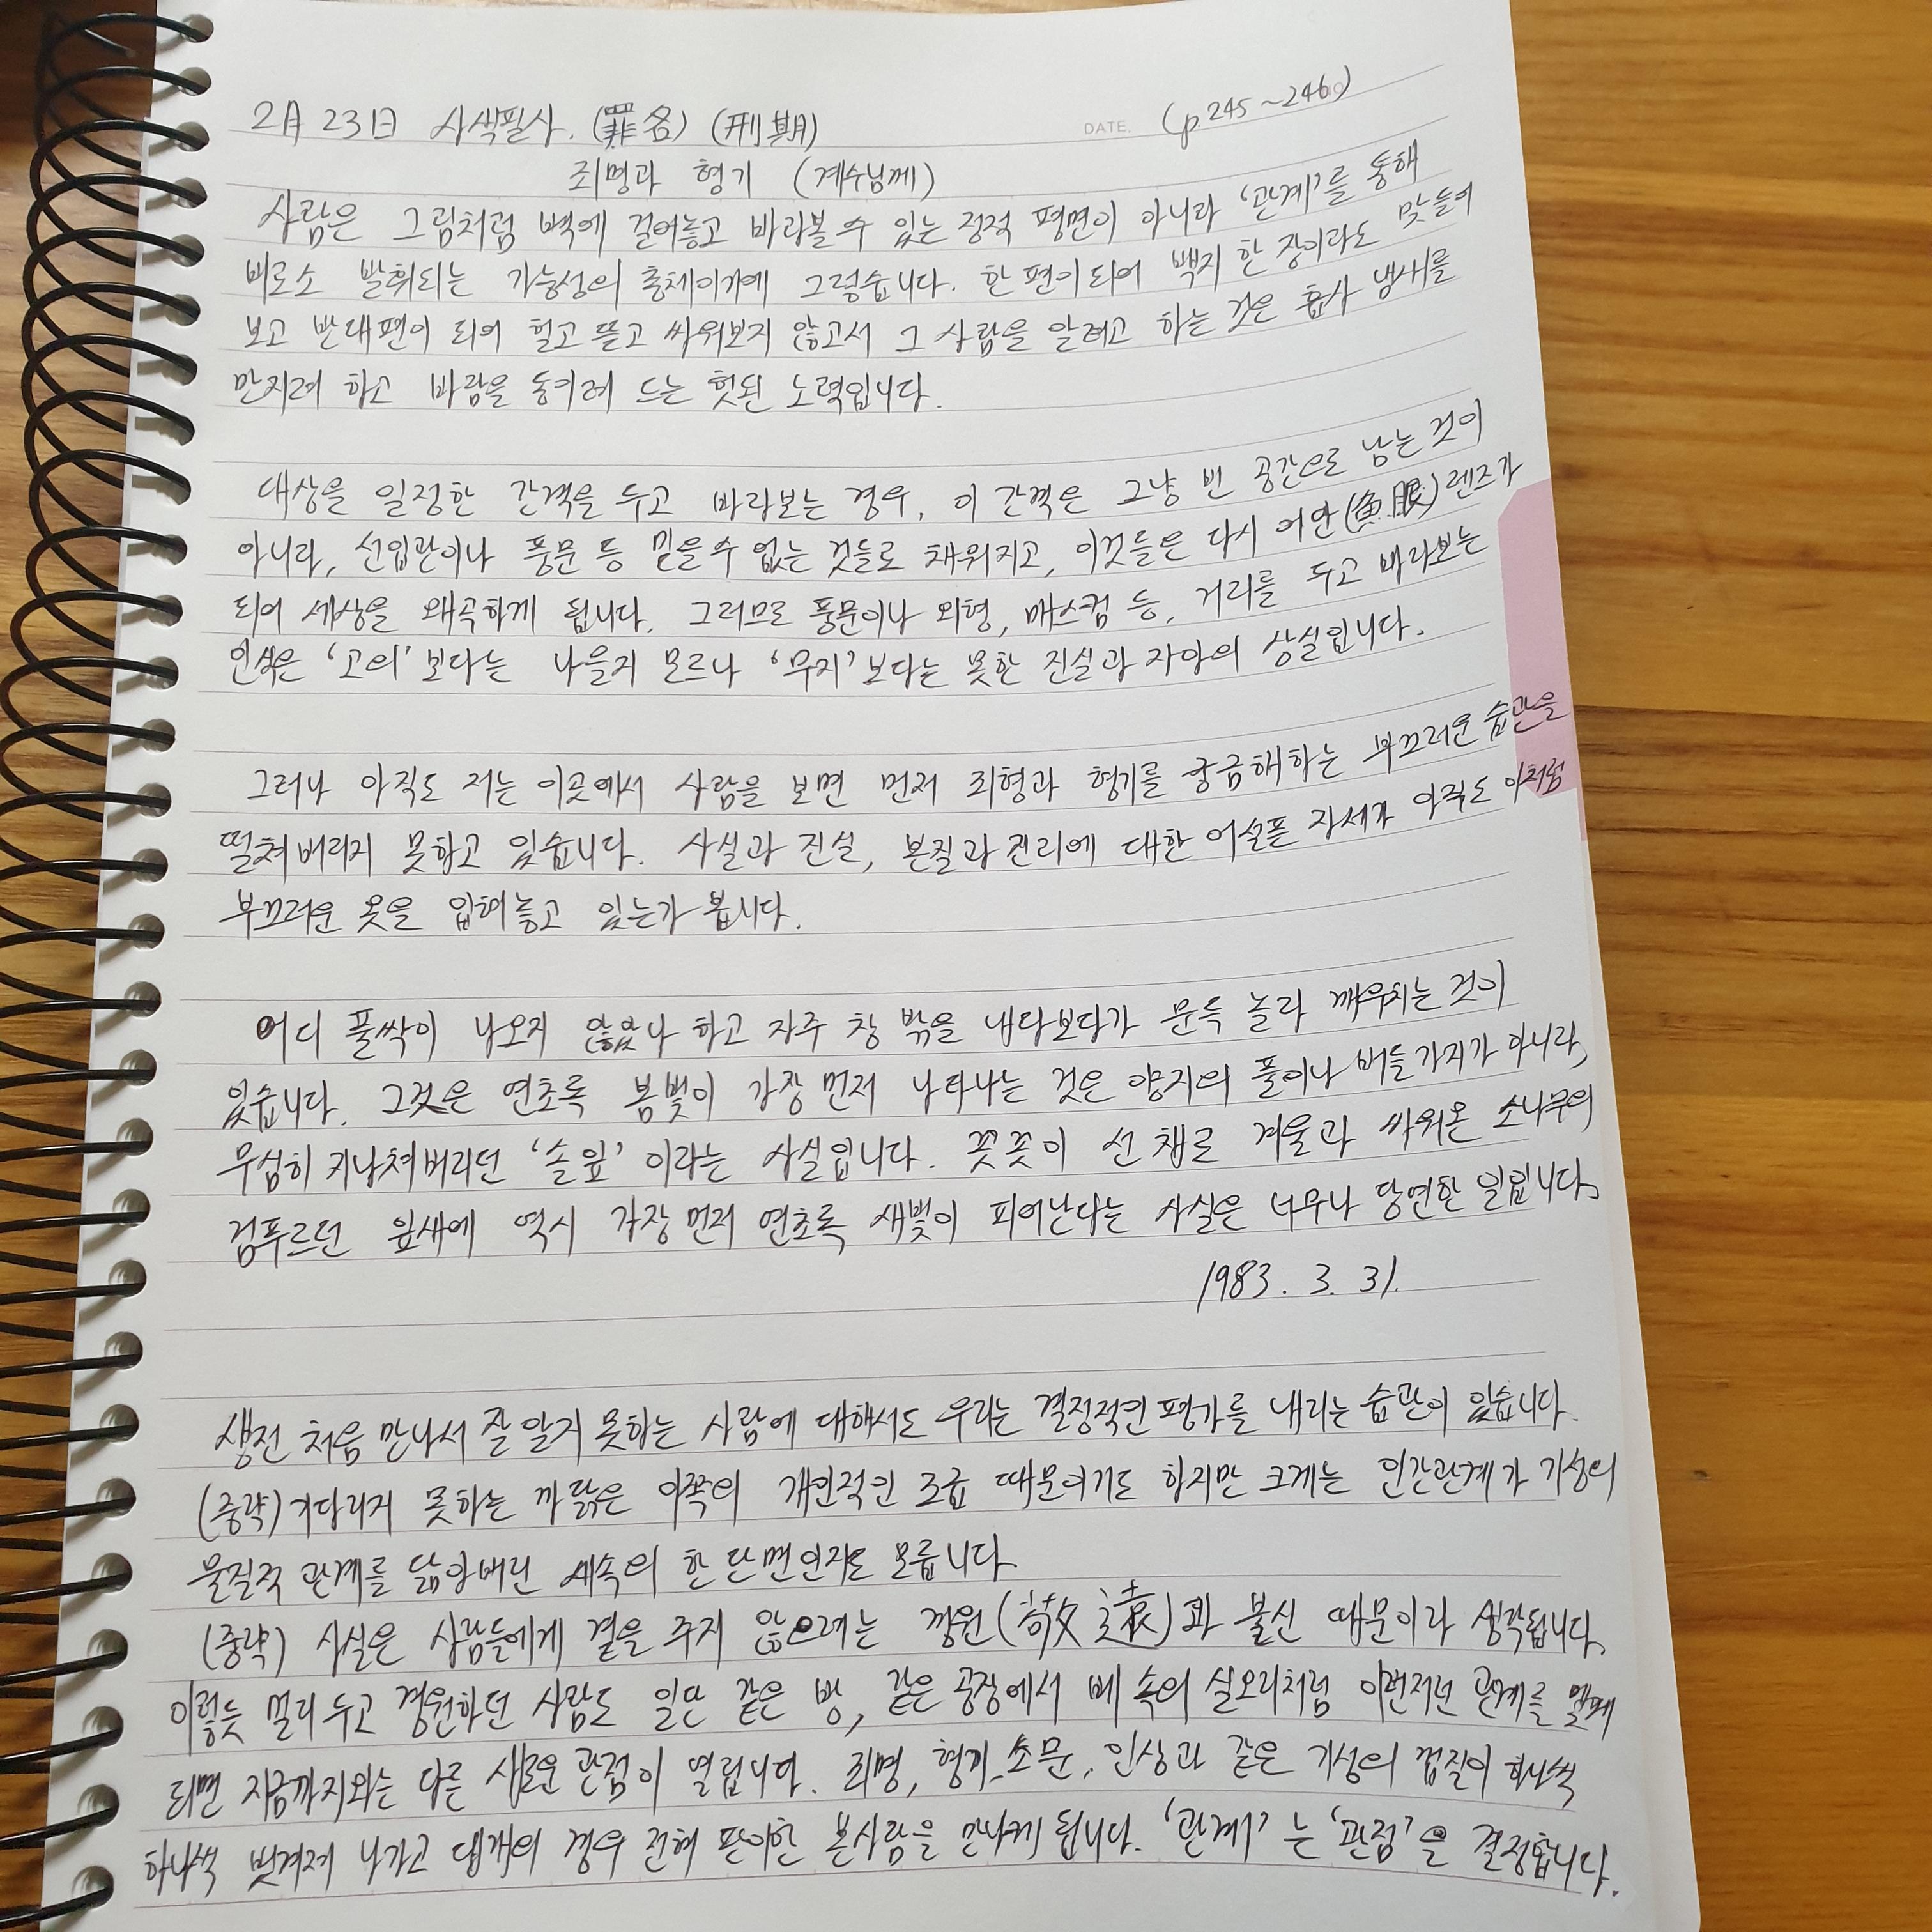 2月 23日 사색필사. (罪名) (刑期)
DATE. (p.245~246)
죄명과 형기 (계수님께)
사람은 그림처럼 벽에 걸어놓고 바라볼 수 있는 정적 평면이 아니라 '관계'를 통해
비로소 발휘되는 가능성의 총체이기에 그렇습니다. 한 편이 되어 백지 한 장이라도 맞들어
보고 반대편이 되어 헐고 뜯고 싸워보지 않고서 그 사람을 알려고 하는 것은 흡사 냄새를
만지려 하고 바람을 동키려 드는 헛된 노력입니다.
대상을 일정한 간격을 두고 바라보는 경우, 이 간격은 그냥 빈 공간으로 남는 것이
아니라, 선입관이나 풍문 등 믿을 수 없는 것들로 채워지고, 이것들은 다시 어안(魚眼)렌즈가
되어 세상을 왜곡하게 됩니다. 그러므로 풍문이나 외형, 매스컴 등, 거리를 두고 바라보는
인식은 '고의'보다는 나을지 모르나 '무지'보다는 못한 진실과 자아의 상실입니다.
그러나 아직도 저는 이곳에서 사람을 보면 먼저 죄형과 형기를 궁금해하는 부끄러운 습관을
떨쳐버리지 못하고 있습니다. 사실과 진실, 본질과 진리에 대한 어설픈 자세가 아직도 이처럼
부끄러운 옷을 입혀놓고 있는가 봅니다.
어디 풀싹이 나오지 않았나 하고 자주 창 밖을 내다보다가 문득 놀라 깨우치는 것이
있습니다. 그것은 연초록 봄빛이 가장 먼저 나타나는 것은 양지의 풀이나 버들가지가 아니라,
무심히 지나쳐버리던 '솔잎'이라는 사실입니다. 꼿꼿이 선 채로 겨울과 싸워온 소나무의
검푸르던 잎새에 역시 가장 먼저 연초록 새빛이 피어난다는 사실은 너무나 당연한 일입니다.
1983. 3. 31.
생전 처음 만나서 잘 알지 못하는 사람에 대해서도 우리는 결정적인 평가를 내리는 습관이 있습니다.
(중략) 기다리지 못하는 까닭은 이쪽의 개인적인 조급 때문이기도 하지만 크게는 인간관계가 기성의
물질적 관계를 닮아버린 세속의 한 단면인지도 모릅니다.
(중략) 사실은 사람들에게 곁을 주지 않으려는 경원(敬遠)과 불신 때문이라 생각됩니다.
이렇듯 멀리 두고 경원하던 사람도 일단 같은 방, 같은 공장에서 베 속의 실오리처럼 이런저런 관계를 맺게
되면 지금까지와는 다른 새로운 관점이 열립니다. 죄명, 형기, 소문, 인상과 같은 기성의 껍질이 하나씩
하나씩 벗겨져 나가고 대개의 경우 전혀 판이한 본사람을 만나게 됩니다. '관계'는 '관점'을 결정합니다.